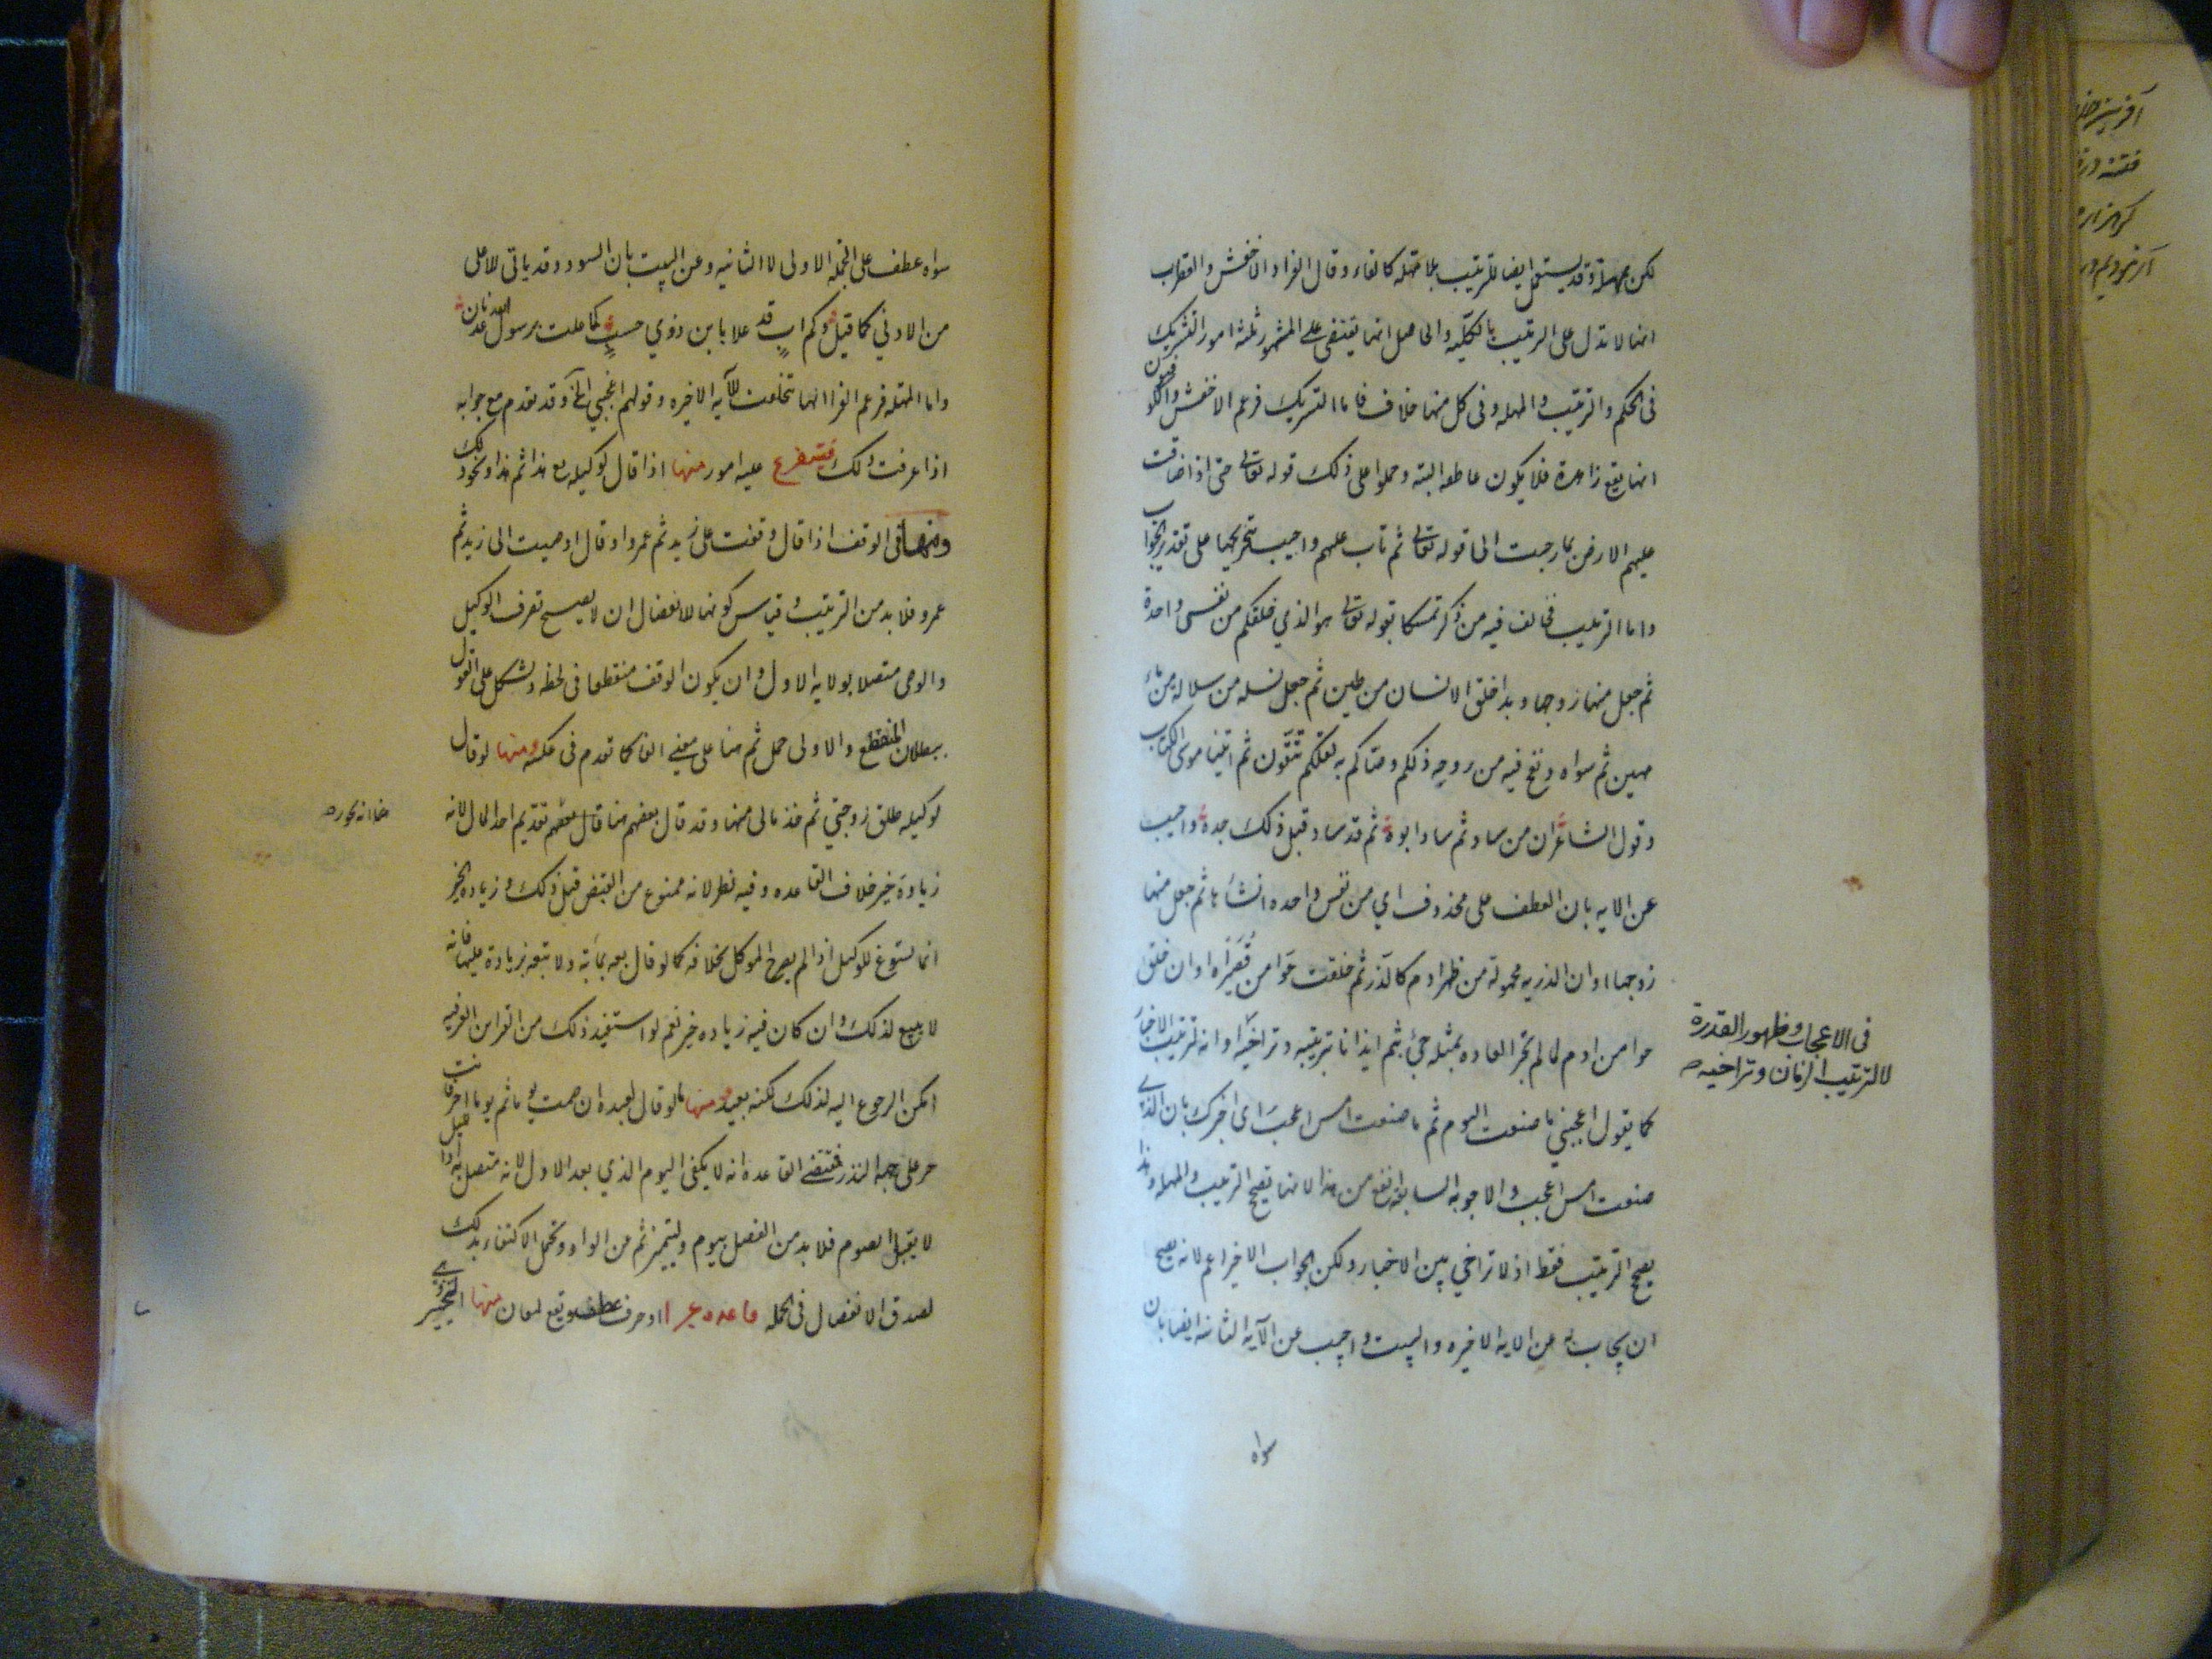 لكن بمهلة وقد يستعمل ايضا للترتيب بلا مهلة كالفاء وقال الفراء والاخفش والقطرب
انها لا تدل على الترتيب بالكلية والحاصل انها يقتضى على المشهور ثلثة امور التشريك
فى الحكم والترتيب والمهله وفى كل منها خلاف فاما التشريك فزعم الاخفش والكوفيون
انها تقع زائدة فلا يكون عاطفه البته وحملوا على ذلك قوله تعالى حتى اذا ضاقت
عليهم الارض بما رحبت الى قوله تعالى ثم تاب عليهم واجيب بتخريجها على تقدير الجواب
واما الترتيب فخالف فيه من ذكر تمسكا بقوله تعالى هو الذي خلقكم من نفس واحدة
ثم جعل منها زوجها وبدا خلق الانسان من طين ثم جعل نسله من سلالة من ماء
مهين ثم سواه ونفخ فيه من روحه ذلكم وصاكم به لعلكم تتقون ثم اتينا موسى الكتاب
وقول الشاعر ان من ساد ثم ساد ابوه ثم قد ساد قبل ذلك جده واجيب
عن الايه بان العطف على محذوف اي من نفس واحده انشأها ثم جعل منها
زوجها او ان الذريه محمولة من ظهر ادم كالذر ثم خلقت حوا من قصيراه او ان خلق
حوا من ادم لما لم تجر العاده بمثله جئ بثم ايذانا بترتيبه وتراخيه او انه لترتيب الاخبار
فى الاعجاب وظهور القدرة
لا لترتيب الزمان وتراخيه صح
كما يقول اعجبني ما صنعت اليوم ثم ما صنعت امس اعجب اى اخبرك بان الذى
صنعت امس اعجب والاجوبه السابقه انفع من هذا لانها تصح الترتيب والمهله وهذا
يصح الترتيب فقط اذ لا تراخي بين الاخبار ولكن الجواب الاخير اعم لانه يصح
ان يجاب به عن الايه الاخيره والبيت واجيب عن الآية الثانيه ايضا بان
سواه
سواه عطف على الجمله الاولى لا الثانيه وعن البيت بان السودد قد ياتى للاعلى
من الادني كما قيل وكم اب قد علا بابن ذوي حسب كما علت برسول الله عدنان
واما المهلة فزعم الفرا انها تخلفت للآية الاخيره وقولهم اعجبني الخ وقد تقدم مع جوابه
اذا عرفت ذلك فيتفرع عليه امور منها اذا قال لوكيله بع هذا ثم هذا ونحو ذلك
ومنها فى الوقف اذا قال وقفت على زيد ثم عمرو او قال اوصيت الى زيد ثم
عمرو فلا بد من الترتيب وقياس كونها للانفصال ان لا يصح تصرف الوكيل
والوصى متصلا بولاية الاول وان يكون الوقف منقطعا فى لحظه ويشكل على القول
ببطلان المنقطع والاولى حمل ثم هنا على معنى الفا كما تقدم فى عكسه ومنها لو قال
لوكيله طلق زوجتي ثم خذ مالى منها وقد قال بعضهم هنا قال بعضهم تقديم اخذ المال لانه
زيادة خير خلاف القاعده وفيه نظر لانه ممنوع من القبض قبل ذلك وزياده الخير
انما تسوغ للوكيل اذا لم يصرح الموكل بخلافه كما لو قال بعه بمأية ولا تبعه بزيادة عليها فانه
لا يبيع لذلك وان كان فيه زياده خير نعم لو استفيد ذلك من القراين العرفيه
امكن الرجوع اليه لذلك لكنه بعيد ومنها ما لو قال لعبده ان صمت يوما ثم يوما اخر فانت
حر على جهه النذر فمقتضى القاعده انه لا يكفى اليوم الذي بعد الاول لانه متصل به اذ الليل
لا يقبل الصوم فلا بد من الفصل بيوم وليتميز ثم من الواو ويحتمل الاكتفاء بذلك
لصدق الانفصال فى الجمله قاعده او حرف عطف ويقع لمعان منها التخيير